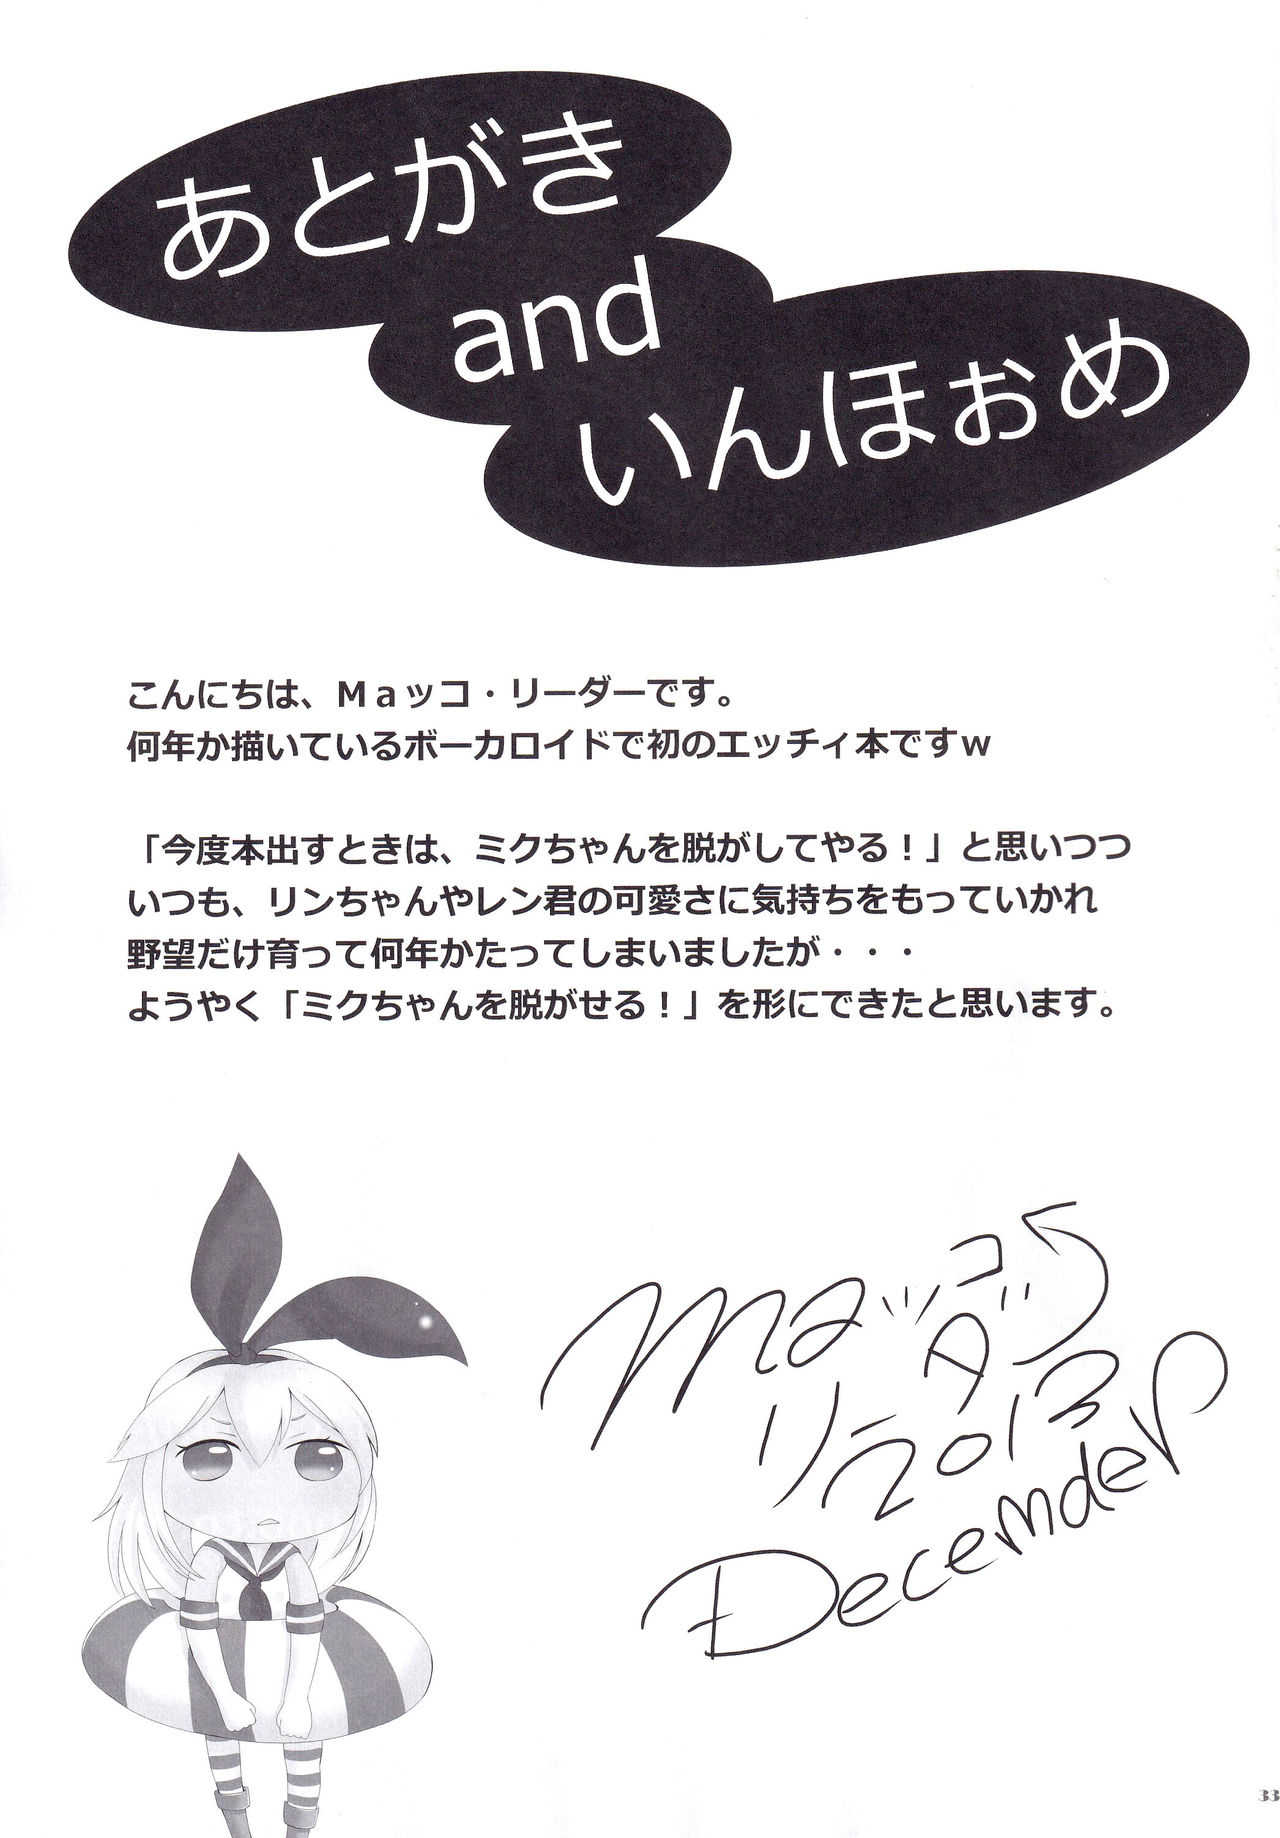 あとがき
and
いんほぉめ
こんにちは、Ｍａッコ・リーダーです。
何年か描いているボーカロイドで初のエッチィ本ですｗ
「今度本出すときは、ミクちゃんを脱がしてやる！」と思いつつ
いつも、リンちゃんやレン君の可愛さに気持ちをもっていかれ
野望だけ育って何年かたってしまいましたが・・・
ようやく「ミクちゃんを脱がせる！」を形にできたと思います。
Maッコ
リーダー
2013
Decemder
33